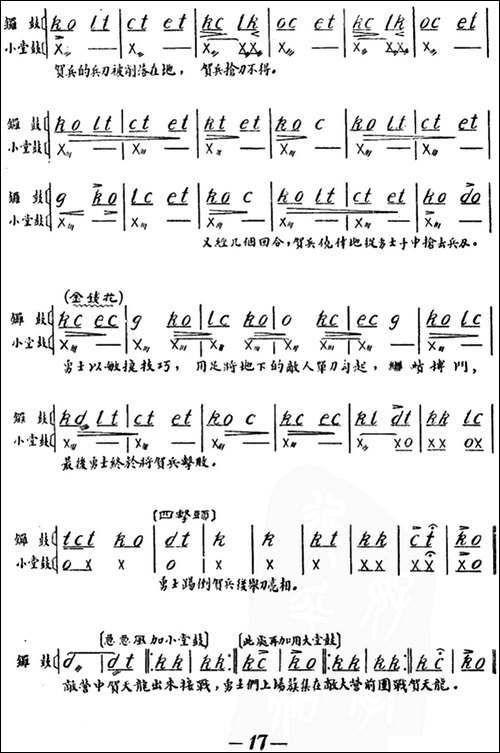 鑼鼓 ko lt | ct et | kc lk | oc et | kc lk | oc et
小堂鼓 x — | x — | x xx | x — | x xx | x —
賀兵的兵刃被削落在地, 賀兵搶刀不得。
鑼鼓 ko lt | ct et | kt et | ko c | ko lt | ct et
小堂鼓 x — | x — | x — | x — | x — | x —
鑼鼓 g ko | lc et | ko c | ko lt | ct et | ko do
小堂鼓 x — | x — | x — | x — | x — | x —
又經几個回合,賀兵僥倖地從勇士手中搶去兵刃。
(金錢花)
鑼鼓 kc ec | g ko | lc ko | o kc | ec g | ko lc
小堂鼓 x — | x x | x x | x x | x — | x —
勇士以敏捷技巧, 用足將地下的敵人單刀勾起, 繼續搏鬥,
鑼鼓 kd lt | ct et | ko c | kc ec | kl dt | kk lc
小堂鼓 x — | x — | x — | x — | x xo | xx ox
最後勇士終於將賀兵擊敗。
[四擊頭]
鑼鼓 tct ko | dt k | k kt | kk ct | ko
小堂鼓 ox x | o x | x x | xx xx | xo
勇士踢倒賀兵後舉刀亮相。
[急急風加小堂鼓] [此處再加用大堂鼓]
鑼鼓 d | dt ‖: kk | kk :‖ kc | ko ‖: kk | kk :‖ kc | ko
敵營中賀天龍出來接戰,勇士們上場簇集在敵大營前圍戰賀天龍。
— 17 —